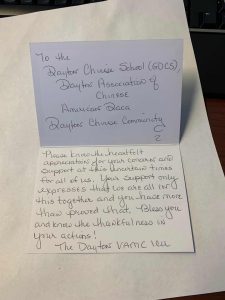 To the
Dayton Chinese School (GDCS)
Dayton Association of
Chinese
American
Dayton Chinese Community
Please know the heartfelt
appreciation for your concerns and
support at this uncertain times
for all of us. Your support only
expresses that we are all in
this together and you have more
than proved that. Bless you
and know the thankfulness in
your actions!
The Dayton VAMC ICU